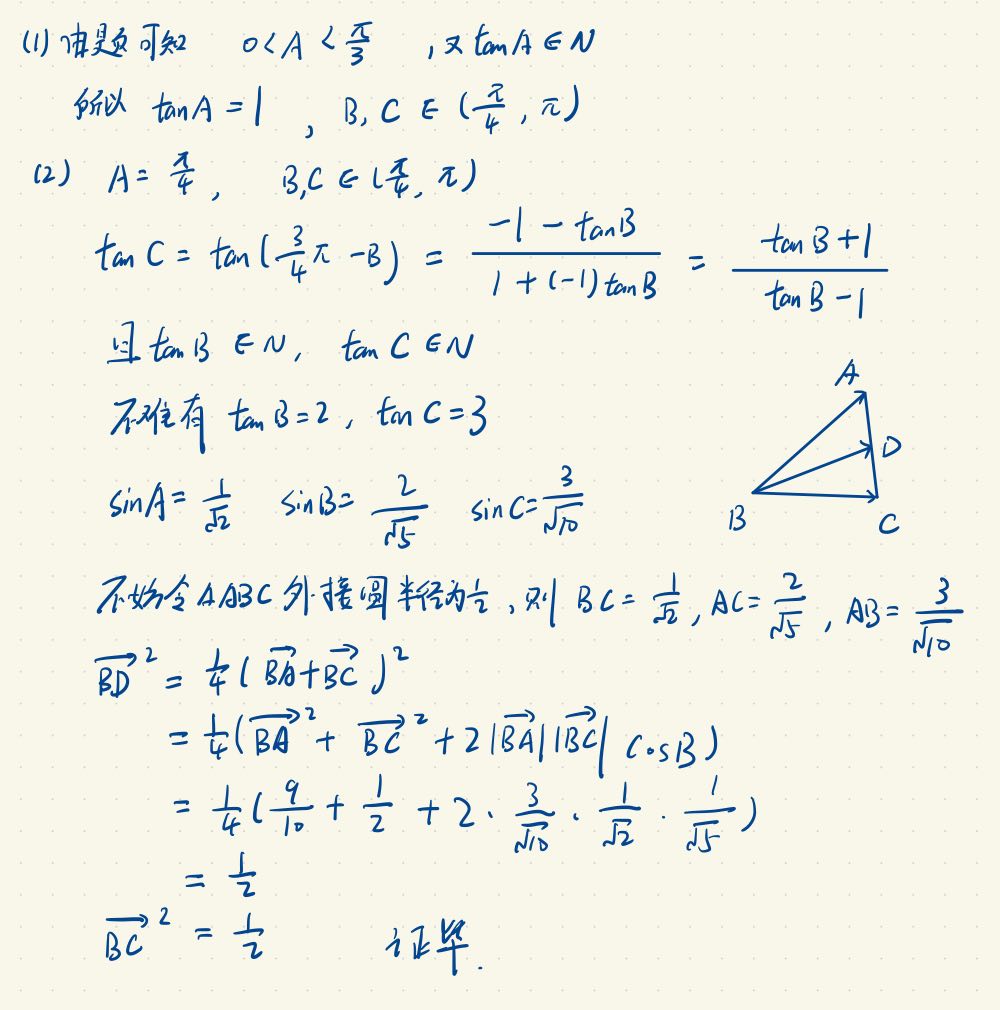 (1) 由题可知 0<A<π/3 ,又 tanA∈N
所以 tanA=1 , B,C∈(π/4,π)
(2) A=π/4, B,C∈(π/4,π)
tanC=tan(3/4π-B)=(-1-tanB)/(1+(-1)tanB)=(tanB+1)/(tanB-1)
且 tanB∈N, tanC∈N
不难有 tanB=2, tanC=3
sinA=1/√2 sinB=2/√5 sinC=3/√10
A
D
B
C
不妨令△ABC外接圆半径为1/2,则 BC=1/√2, AC=2/√5, AB=3/√10
\overrightarrow{BD}^2=1/4(\overrightarrow{BA}+\overrightarrow{BC})^2
=1/4(\overrightarrow{BA}^2+\overrightarrow{BC}^2+2|\overrightarrow{BA}||\overrightarrow{BC}|cosB)
=1/4(9/10+1/2+2·3/√10·1/√2·1/√5)
=1/2
\overrightarrow{BC}^2=1/2 证毕.